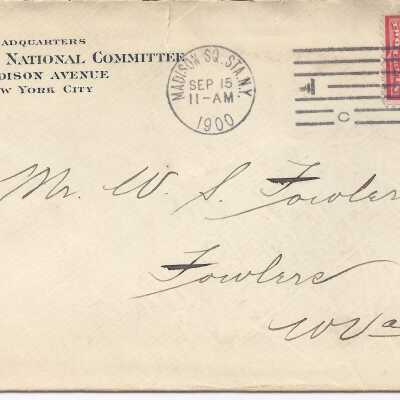 EADQUARTERS
NATIONAL COMMITTEE
DISON AVENUE
EW YORK CITY
MADISON SQ. STA. N.Y.
SEP 15
11-AM
1900
1
C
Mr. W. S. Fowler
Fowlers
W Va